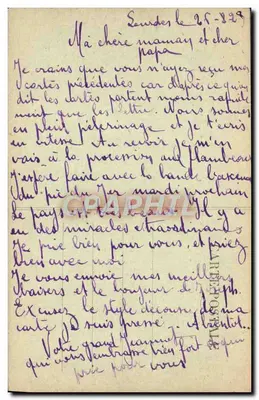 Lourdes le 25-8 29
Ma chère maman et cher
papa
Je crains que vous n'ayez reçu mes
cartes précédentes car d'après ce qu'on
dit les cartes partent moins rapide
ment que les lettres. Nous sommes
en plein pèlerinage et je t'écris
en vitesse. Au revoir je m'en
vais à la procession aux flambeaux
J'espère faire avec la bande
mardi prochain
le pays est Il y a
eu des miracles extraordinaires
Je prie bien pour vous, et priez
bien avec moi
Je vous envoie mes meilleurs
baisers et le bonjour de
Excusez le style décousu de ma
carte je suis pressé. A bientôt.
Votre grand
qui vous embrasse bien fort et qui
prie pour vous
CARTE POSTALE
CPAPHIL